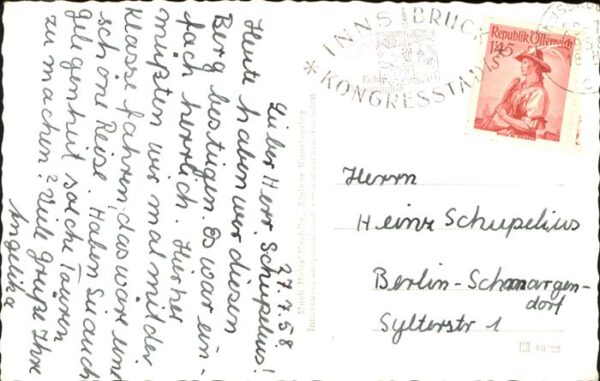 27.7.58
Lieber Herr Schupelius!
Heute haben wir diesen
Berg bestiegen. Es war ein-
fach herrlich. Hierher
müßten wir mal mit der
Klasse fahren, das wäre eine
schöne Reise. Haben Sie auch
gelegenheit solche Touren
zu machen? Viele Grüße Ihre
Angelika
INNSBRUCK
* KONGRESSTADT
Republik Österreich
1'45
S
Herrn
Heinz Schupelius
Berlin-Schmargen-
dorf
Sylterstr 1